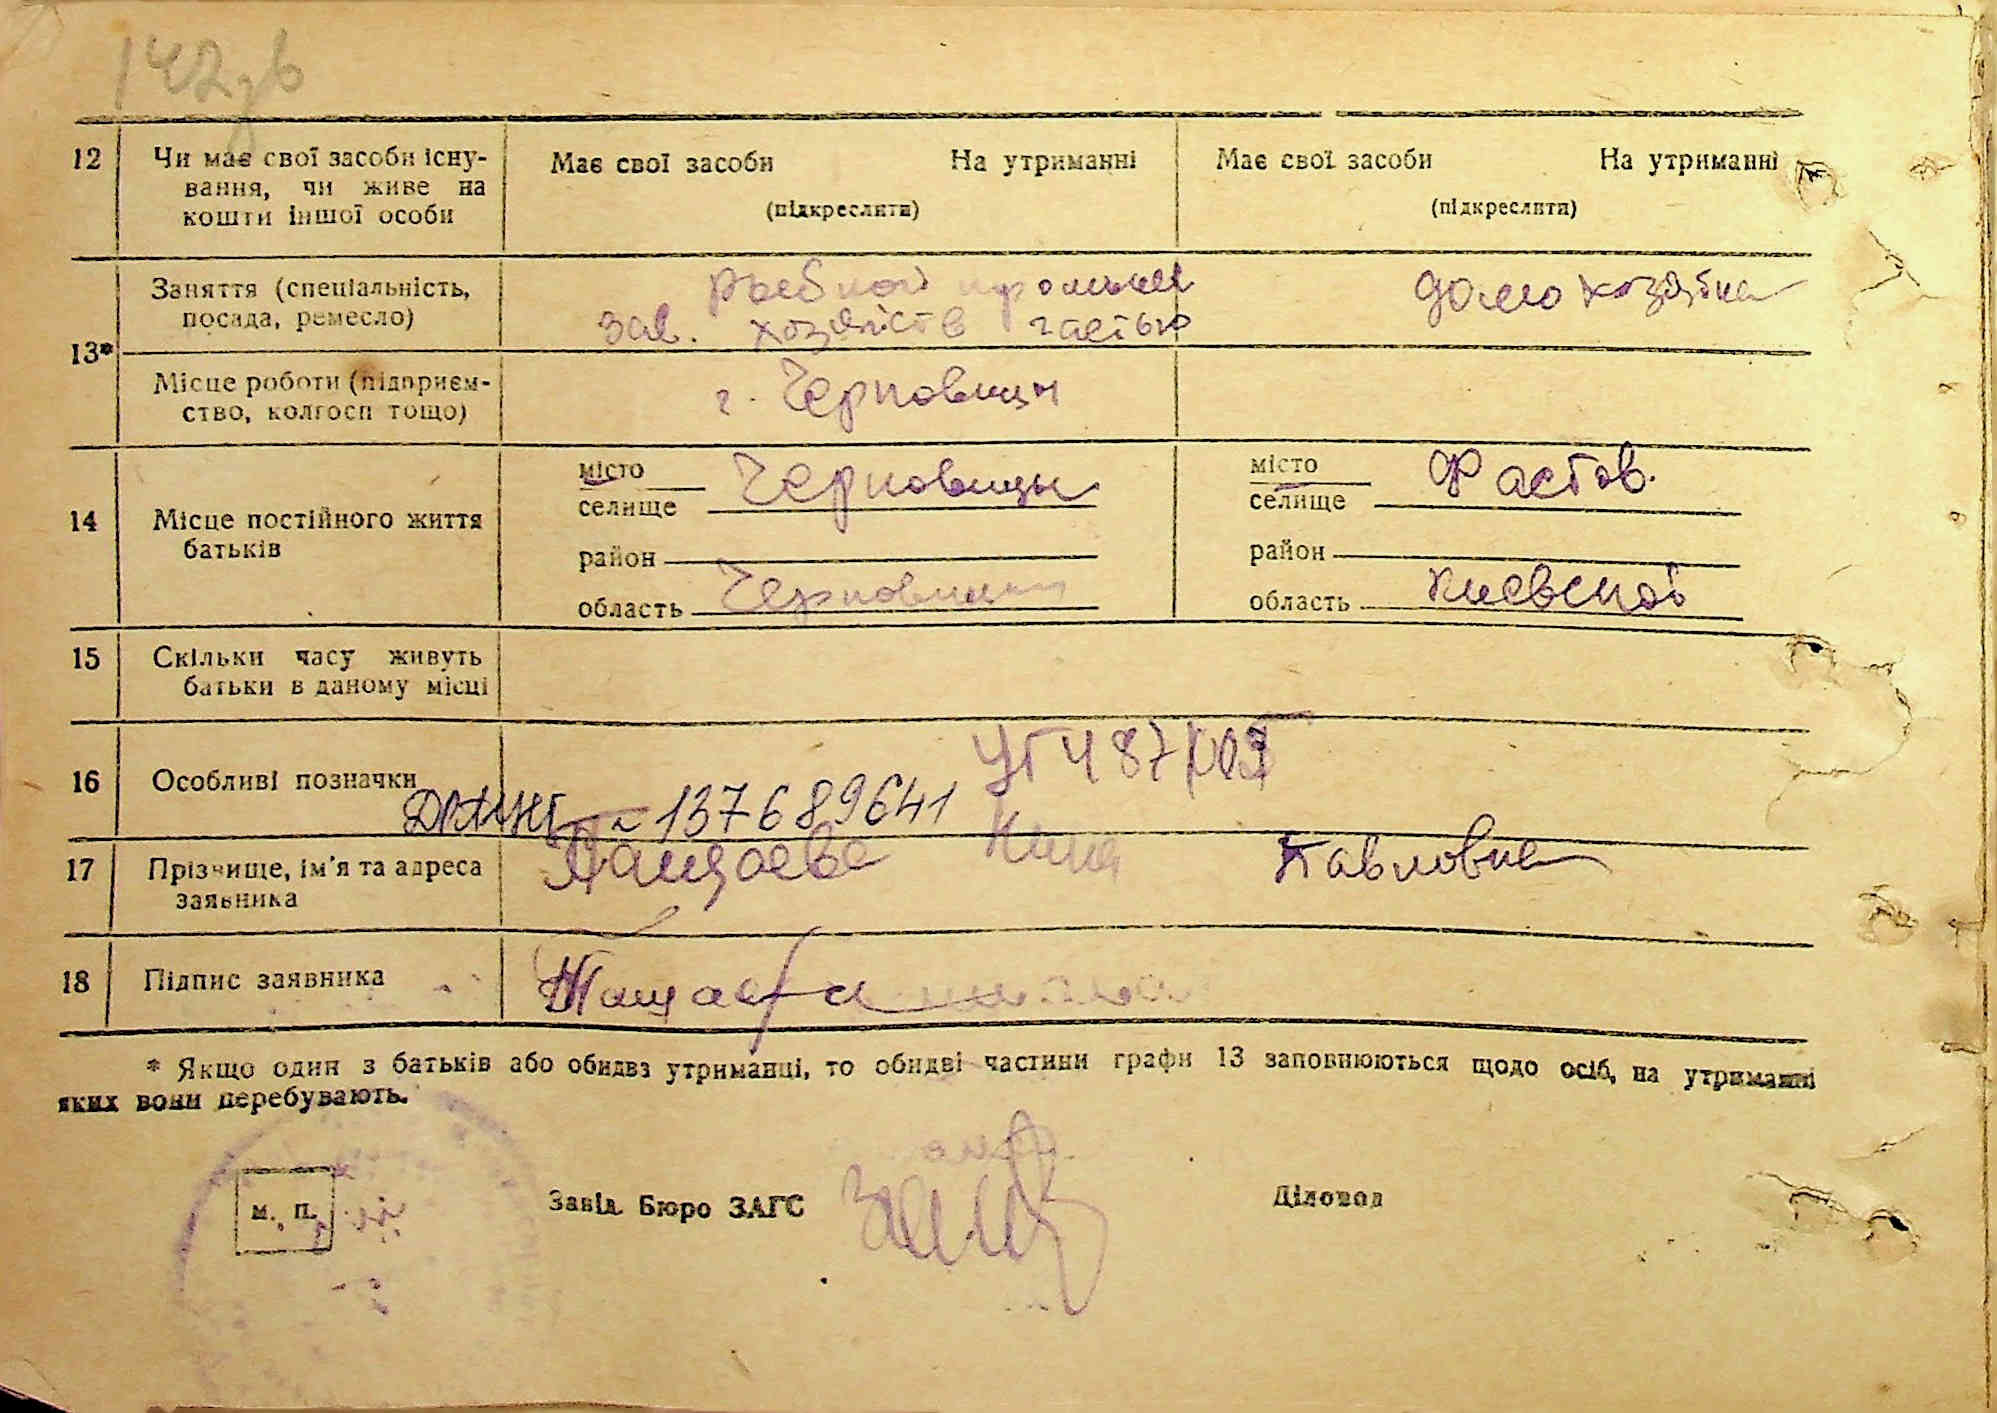 142зв
12 Чи має свої засоби існу-
вання, чи живе на
кошти іншої особи
Має свої засоби На утриманні
(підкреслити)
Має свої засоби На утриманні
(підкреслити)
13*
Заняття (спеціальність,
посада, ремесло)
рыбной промышл
зав. хозяйств частью
домохозяйка
Місце роботи (підприєм-
ство, колгосп тощо)
г. Черновцы
14 Місце постійного життя
батьків
місто
селище
Черновицы
район
область
місто
селище
Фастов.
район
область Киевской
15 Скільки часу живуть
батьки в даному місці
16 Особливі позначки
137689641
17 Прізвище, ім'я та адреса
заявника
Пащаева Нина Павловна
18 Підпис заявника
Пащаева
* Якщо один з батьків або обидвз утриманці, то обидві частини графи 13 заповнюються щодо осіб, на утриманні
яких вони перебувають.
м. п.
Завід. Бюро ЗАГС
Діловод